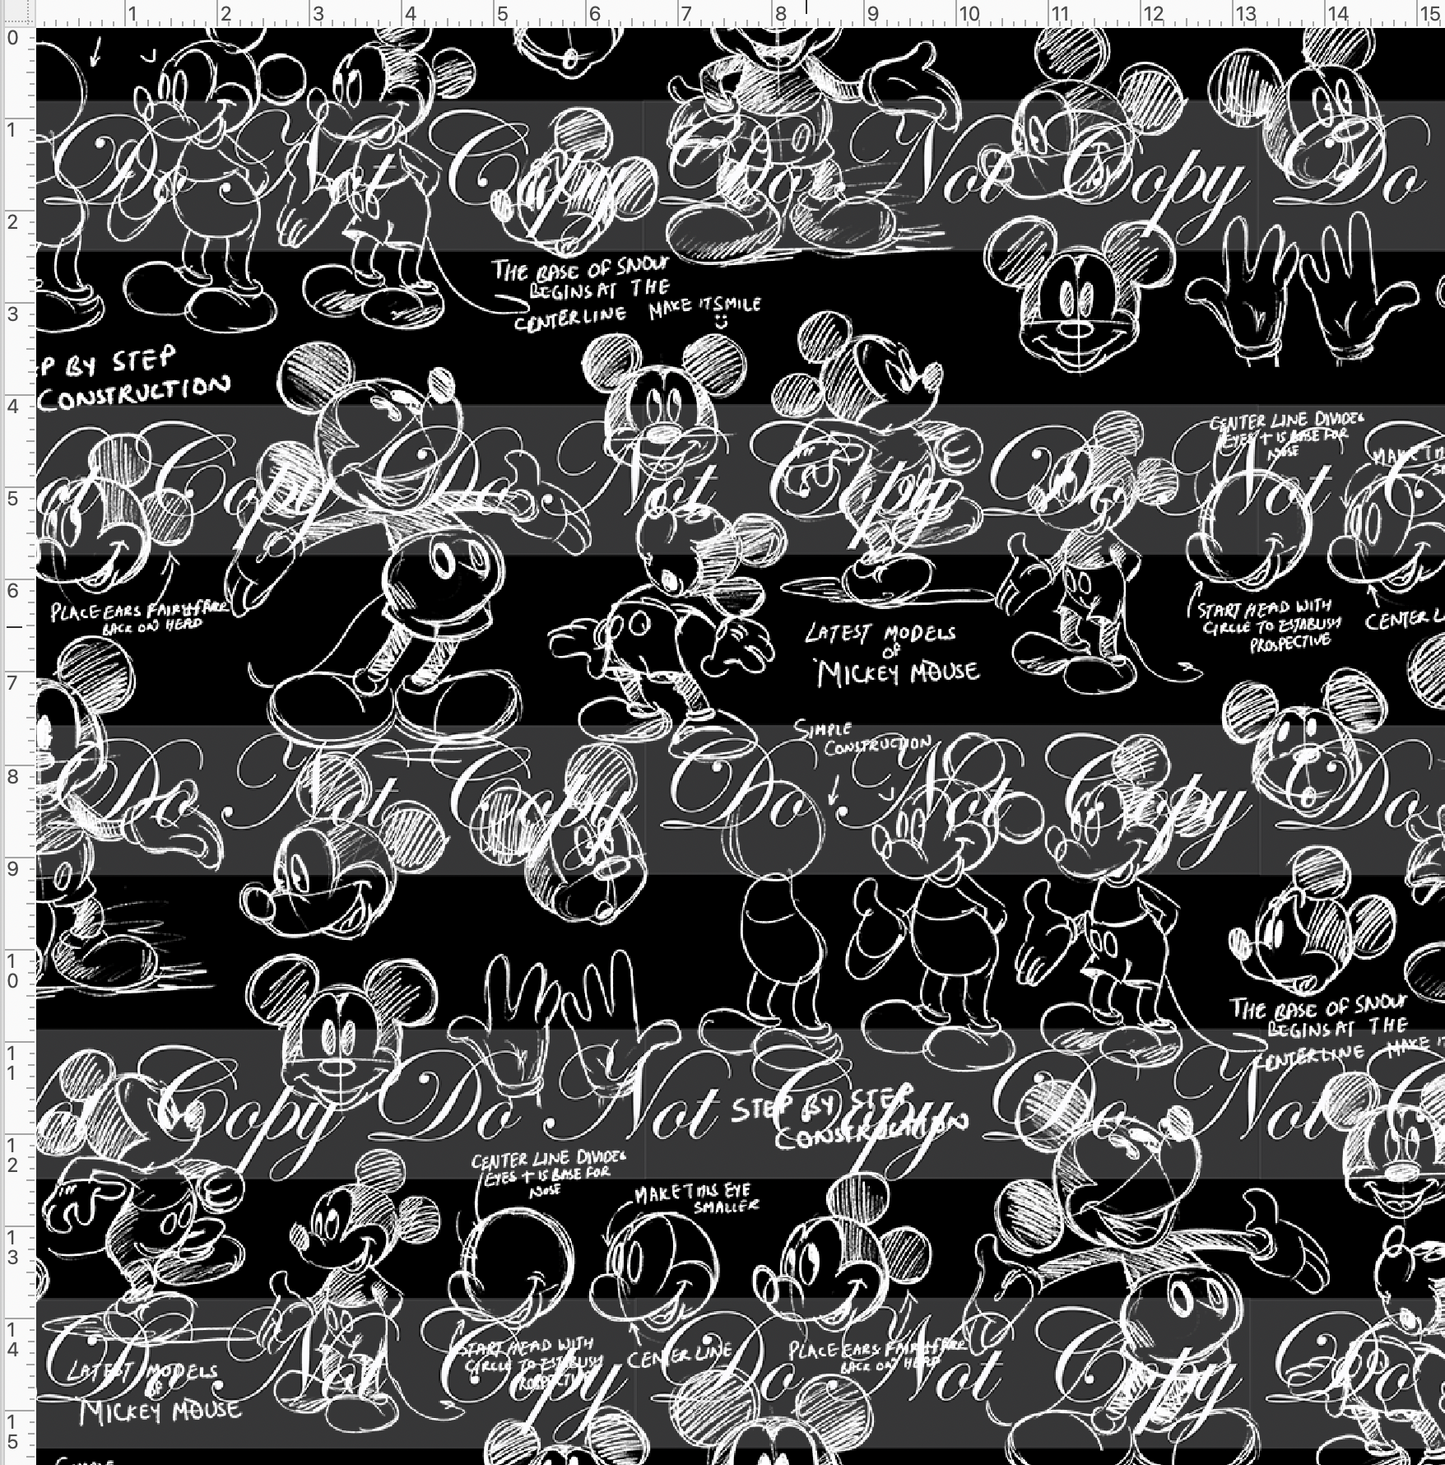 1 2 3 4 5 6 7 8 9 10 11 12 13 14 15
0
1
2
3
4
5
6
7
8
9
10
11
12
13
14
15
Do Not Copy Do Not Copy Do
THE BASE OF SNOUT
BEGINS AT THE
CENTERLINE MAKE IT SMILE
P BY STEP
CONSTRUCTION
CENTER LINE DIVIDES
EYES + IS BASE FOR
NOSE
MAKE TH
Not Copy Do Not Copy Do Not
PLACE EARS FAIRLY FARR
BACK ON HEAD
START HEAD WITH
CIRCLE TO ESTABLISH
PROSPECTIVE
CENTER L
LATEST MODELS
OF
MICKEY MOUSE
SIMPLE
CONSTRUCTION
Do Not Copy Do Not Copy Do
THE BASE OF SNOUT
BEGINS AT THE
CENTERLINE MAKE IT
Not Copy Do Not Copy Do Not
STEP BY STEP
CONSTRUCTION
CENTER LINE DIVIDES
EYES + IS BASE FOR
NOSE
MAKE THIS EYE
SMALLER
START HEAD WITH
CIRCLE TO ESTABLISH
PROSPECTIVE
CENTER LINE
PLACE EARS FAIRLY FARR
BACK ON HEAD
Do Not Copy Do Not Copy Do
LATEST MODELS
OF
MICKEY MOUSE